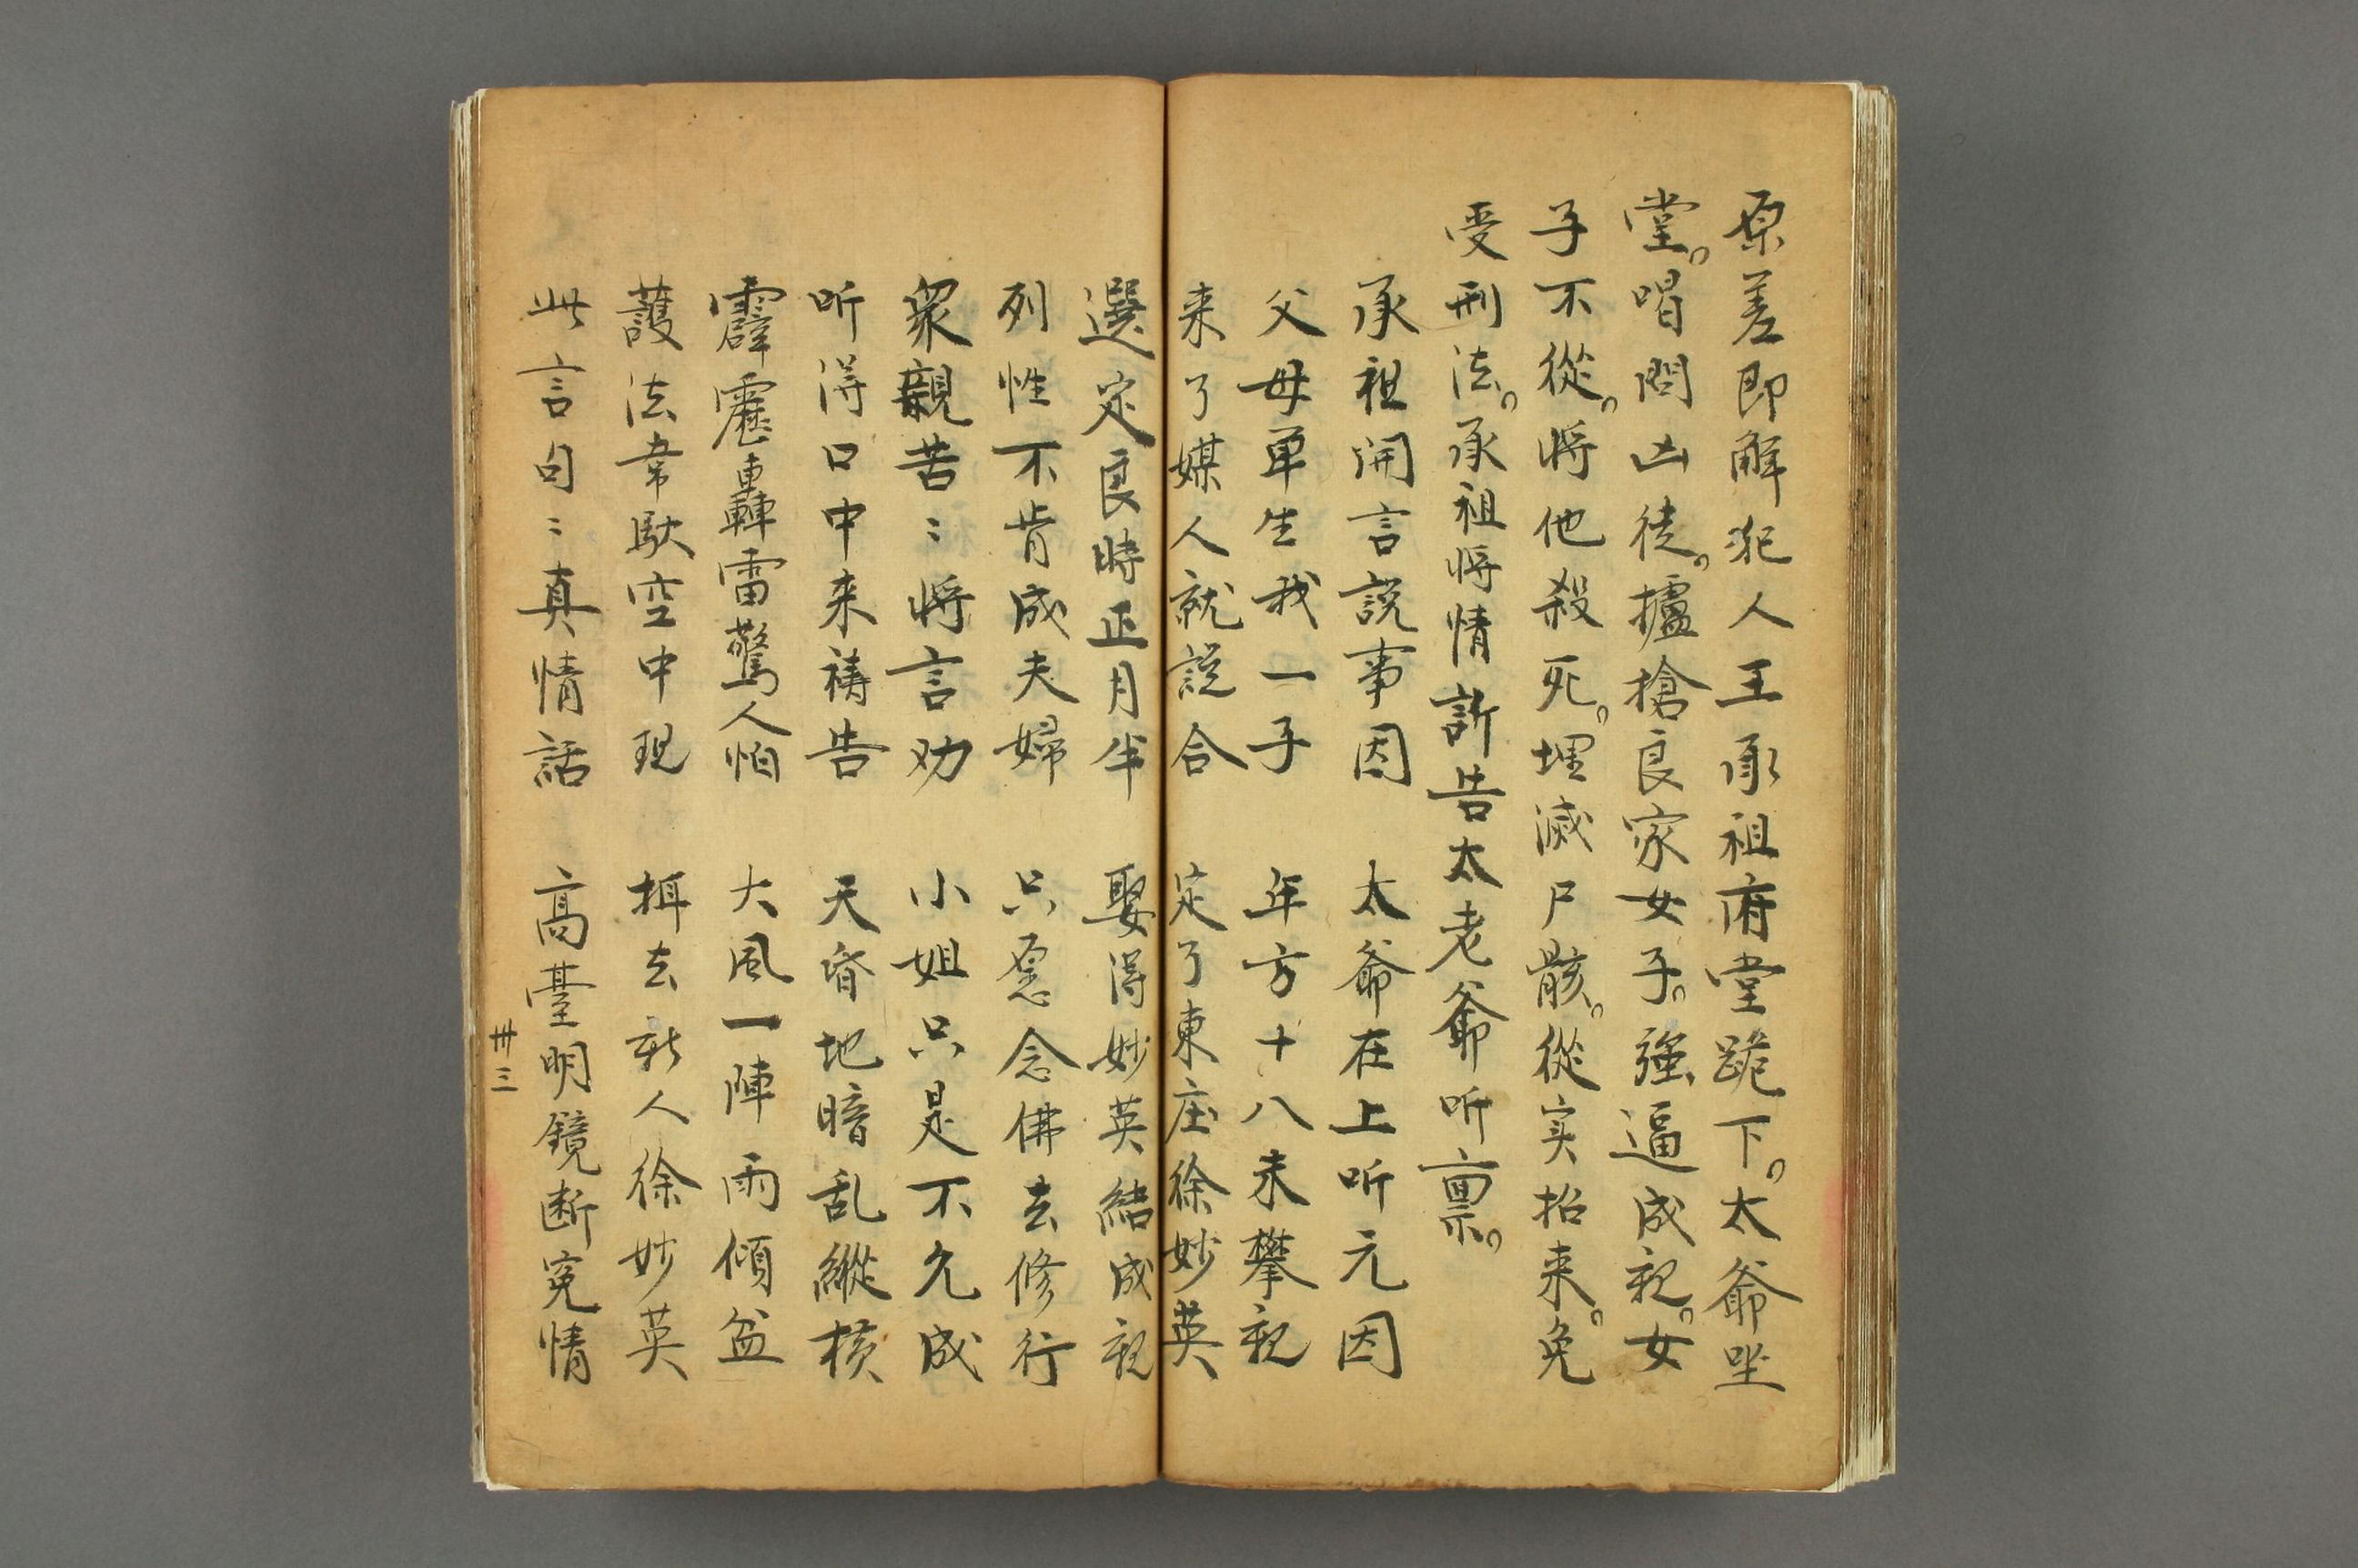 原差即解犯人王承祖府堂跪下。太爺坐
堂。喝問凶徒。攎搶良家女子。強逼成親。女
子不從。將他殺死。埋滅尸骸。從实招来。免
受刑法。承祖将情訴告太老爺听禀。
承祖開言説事因　太爺在上听元因
父母单生我一子　年方十八未攀親
来了媒人就説合　定了東庄徐妙英
選定良時正月半　娶得妙英結成親
列性不肯成夫婦　只愿念佛去修行
衆親苦〻將言劝　小姐只是不允成
听得口中来祷告　天昏地暗乱縱横
霹靂轟雷驚人怕　大風一陣雨傾盆
護法韋馱空中現　摂去新人徐妙英
此言句〻真情話　高臺明鏡断冤情
卅三